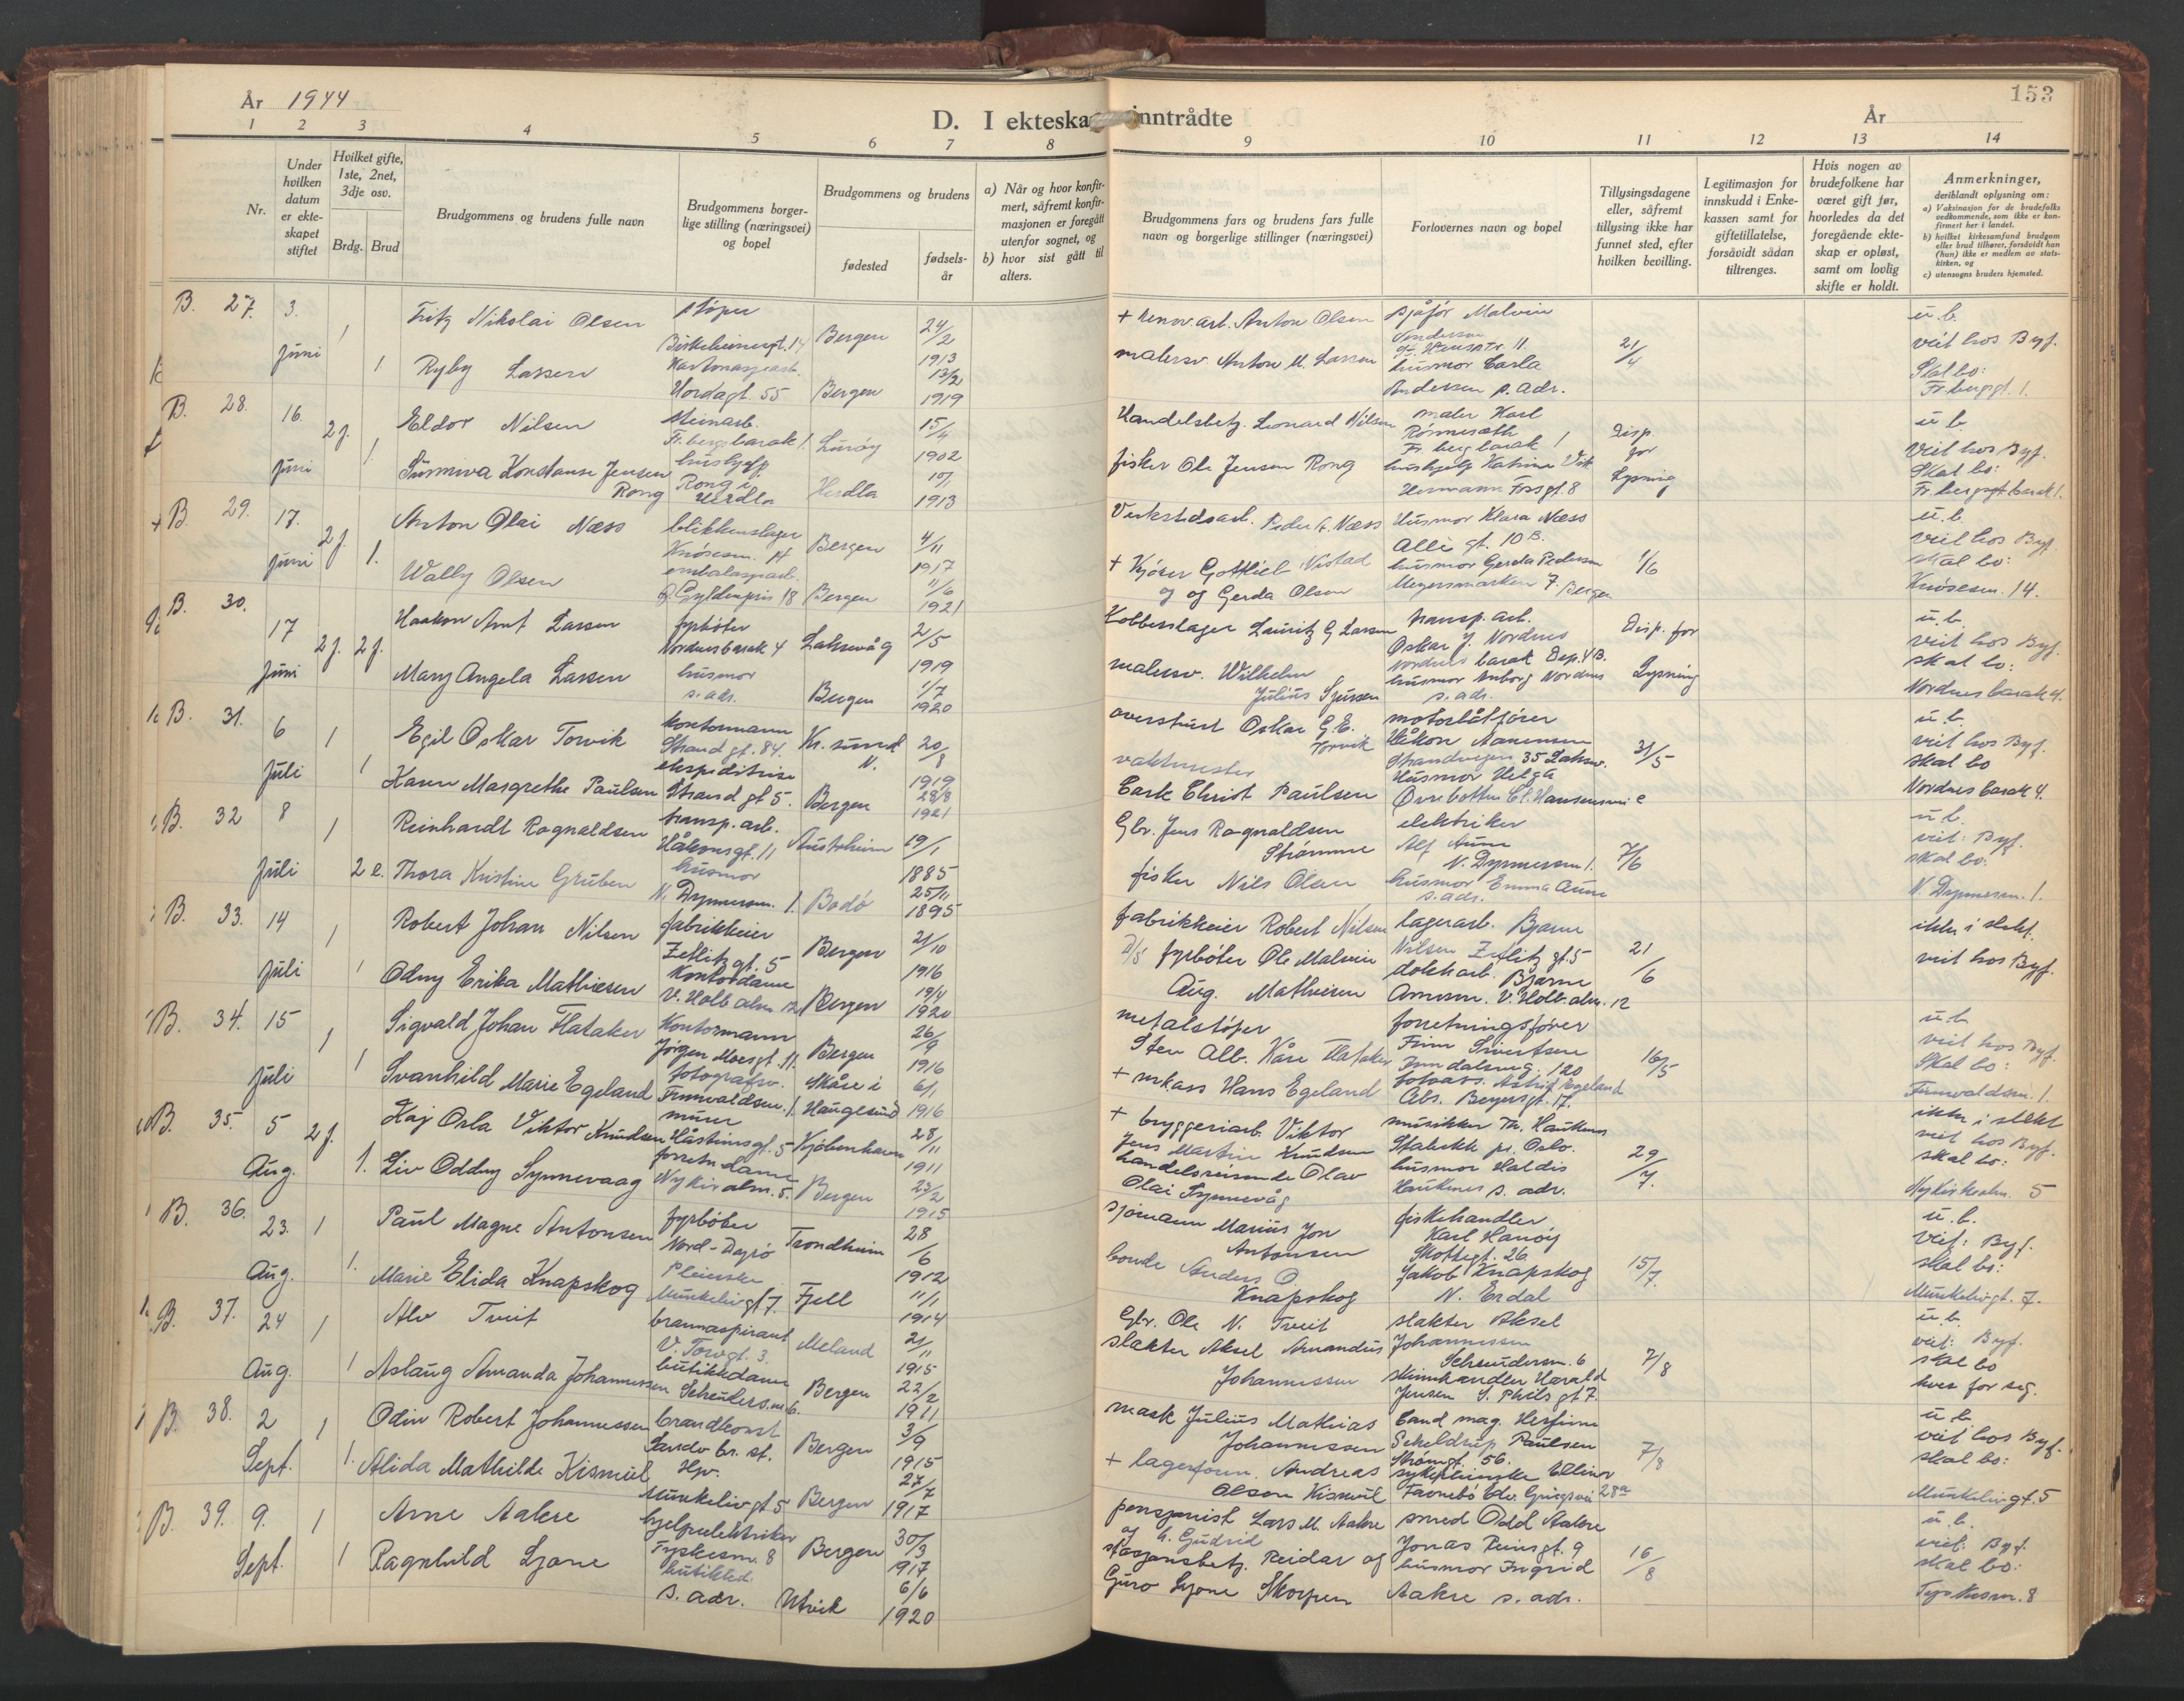 År 1944
D. I ekteska inntrådte
År
153
1 2 3 4 5 6 7 8 9 10 11 12 13 14
Nr.
Under hvilken datum er ekte-skapet stiftet
Hvilket gifte, 1ste, 2net, 3dje osv.
Brdg. Brud
Brudgommens og brudens fulle navn
Brudgommens borger-lige stilling (næringsvei) og bopel
Brudgommens og brudens
fødested
fødsels-år
a) Når og hvor konfir-mert, såfremt konfir-masjonen er foregått utenfor sognet, og
b) hvor sist gått til alters.
Brudgommens fars og brudens fars fulle navn og borgerlige stillinger (næringsvei)
Forlovernes navn og bopel
Tillysingsdagene eller, såfremt tillysing ikke har funnet sted, efter hvilken bevilling.
Legitimasjon for innskudd i Enke-kassen samt for giftetillatelse, forsåvidt sådan tiltrenges.
Hvis nogen av brudefolkene har været gift før, hvorledes da det foregående ekte-skap er opløst, samt om lovlig skifte er holdt.
Anmerkninger,
deriblandt oplysning om:
a) Vaksinasjon for de brudefolks vedkommende, som ikke er kon-firmert her i landet.
b) hvilket kirkesamfund brudgom eller brud tilhører, forsåvidt han (hun) ikke er medlem av stats-kirken, og
c) utensogns bruders hjemsted.
B. 27. 3. Juni 1
Fritz Nikolai Olsen
støper
Bergen 24/2 1913
+ renov.arb. Anton Olsen
sjåfør Malvin
21/4
u.b.
veit hos Byf.
1 Ryby Lassen
Hordagt. 55
Bergen 13/2 1919
malersv. Anton M. Lassen
husmor Carla
Andersen s. adr.
Skal bo:
Fr.bergsgt. 1.
B. 28. 16. Juni 2 j.
Eldor Nilsen
Steinarb.
Fr. bergs barak 1.
Lurøy 15/4 1902
Handelsbetj. Leonard Nilsen
maler Karl
Fr. berg barak 1
Disp. for Lysning
u b.
Veit hos Byf.
1. Sunniva Konstanse Jensen Rong
Rong i Herdla
Herdla 10/1 1913
fisker Ole Jensen Rong
hushjelp Katrine Vik
Hermann Fossgt. 8
Skal bo:
Fr. bergsgt barak 1.
B. 29. 17. Juni 2 j.
Anton Olai Næss
blikkenslager
Knøsesm. 14
Bergen 4/11 1917
Verkstedsarb. Peder A. Næss
Husmor Klara Næss
Allé gt. 10 B.
1/6
u.b.
veit hos Byf.
1. Wally Olsen
emballasjearb.
Gyldenpris 18
Bergen 11/6 1921
+ Kjører Gottlieb Nistad
og Gerda Olsen
husmor Gerda Pedersen
Meyersmarken 7. Bergen
skal bo:
Knøsesm. 14.
B. 30. 17 Juni 2 j. 2 j.
Haakon Arnt Larsen
fyrbøter
Nordnesbarak 4
Laksevåg 2/5 1919
Kobberslager Lauritz G Larsen
transp. arb.
Oskar J. Nordnes
Nordnes barak Dep. 4 B.
Disp. for Lysning
u.b.
veit hos Byf.
Mary Angela Larsen
husmor
s. adr.
Bergen 1/7 1920
malersv. Wilhelm
Julius Sjursen
husmor Inborg Nordnes
s. adr.
skal bo:
Nordnes barak 4.
B. 31. 6 Juli 1
Egil Oskar Torvik
kontormann
Strand gt. 84.
Kr. sund N. 20/8 1919
overstuert Oskar G.E. Torvik
motorbåtfører
Håkon Aanensen
Strandvegen 35 Laksev.
31/5
u.b.
veit hos Byf.
1 Karen Margrethe Paulsen
ekspeditrise
Strand gt 5.
Bergen 28/8 1921
vaktmester
Carl Christ Paulsen
Husmor Helga
skal bo
Nordnes barak 4.
B. 32 8 Juli 1
Reinhardt Ragnaldsen
transp. arb.
Håkonsgt. 11
Austrheim 19/1 1885
Gbr. Jens Ragnaldsen
Strømme
elektriker
Alf Aune
N. Dyrmersm 1.
7/6
u.b.
veit: Byf.
2 e. Thora Kristine Gruben
husmor
N. Dyrmersm. 1.
Bodø 25/11 1895
fisker Nils Olsen
husmor Emma Aune
s. adr.
skal bo:
N. Dyrmersm. 1.
B. 33. 14 Juli 1
Robert Johan Nilsen
fabrikkeier
Zetlitz gt. 5
Bergen 21/10 1916
fabrikkeier Robert Nilsen
lagerarb. Bjarne
Nilsen Zetlitz gt. 5
21/6
ikke i slekt.
veit hos Byf.
1 Odny Erika Mathiesen
Kontordame
V. Holb alm 12
Bergen 19/4 1920
D/s fyrbøter Ole Malvin
Aug. Mathiesen
dokkarb. Bjarne
Arnesen. V. Holb. alm. 12
B. 34. 15 Juli 1
Sigvald Johan Flataker
Kontormann
Jørgen Moesgt. 11.
Bergen 26/9 1916
metalstøper
Sten Alb. Kåre Flataker
forretningsfører
Finn Sivertsen
16/5
u.b.
veit hos Byf.
1 Svanhild Marie Egeland
fotografsv.
Finnvaldsm. 1.
Skåre i Haugesund 6/1 1916
+ inkass Hans Egeland
Abs. Beyersgt. 17.
Skal bo:
Finnvaldsm. 1.
B. 35. 5 Aug. 2 j.
Kaj Orla Viktor Knudsen
murer
Håsteinsgt. 5
Kjøbenhavn 28/11 1911
+ bryggeriarb. Viktor
Jens Martin Knudsen
musikker Th. Haukenes
Stabekk pr. Oslo.
29/7.
ikke i slekt
veit hos Byf.
1. Liv Oddny Synnevaag
forretn dame
Nykiralm. 5.
Bergen 23/2 1915
handelsreisende Olav
Olai Synnevåg
husmor Haldis
Haukenes s. adr.
skal bo:
Nykirkealm. 5
B. 36. 23. Aug. 1
Paul Magne Antonsen
fyrbøter
Trondheim 28/6 1912
sjømann Marius Jon
Antonsen
fiskehandler
Karl Hanøy
Skottegt. 26
15/7.
u.b.
veit: Byf.
1. Marie Elida Knapskog
Pleierske
Munkelivgt 7.
Fjell 11/1 1914
bonde Anders O.
Knapskog
Jakob Knapskog
N. Erdal
skal bo:
Munkelivgt. 7.
B. 37. 24 Aug. 1
Alv Tveit
brannaspirant
V. Torvgt. 3.
Meland 21/11 1915
Gbr. Ole N. Tveit
slakter Aksel
Johannessen
7/8
u.b.
veit: Byf.
1 Aslaug Amanda Johannessen
butikkdame
Bergen 22/2 1911
slakter Aksel Amandus
Johannessen
skinnhandler Harald
Jensen
skal bo
hver for seg.
B. 38. 2 Sept. 1
Odin Robert Johannessen
brandkonst
Sandv br. st.
Bergen 3/9 1915
mask Julius Mathias
Johannessen
Cand mag. Herfinn
Scheldrup Paulsen
Strømgt. 56.
7/8
u b.
veit hos Byf.
1. Alida Mathilde Kismul
Hjv.
Munkelivgt 5
Bergen 27/7 1917
+ lagerform. Andreas
Olson Kismul
sykepleierske Ellinor
28a
skal bo:
Munkelivgt. 5
B. 39. 9. Sept. 1
Arne Aakre
hjelpeelektriker
Tyskesm. 8
Bergen 30/3 1917
pensjonist Lars M. Aakre
og h. Gudrid
smed Odd Aakre
Jonas Reinsgt. 9
16/8
u.b.
veit: Byf.
1 Ragnhild Ljone
butikkd.
s. adr.
Utvik 6/6 1920
stasjonsbetj. Reidar og
Guro Ljone Skorpen
husmor Ingrid
Aakre s. adr.
skal bo:
Tyskesm. 8